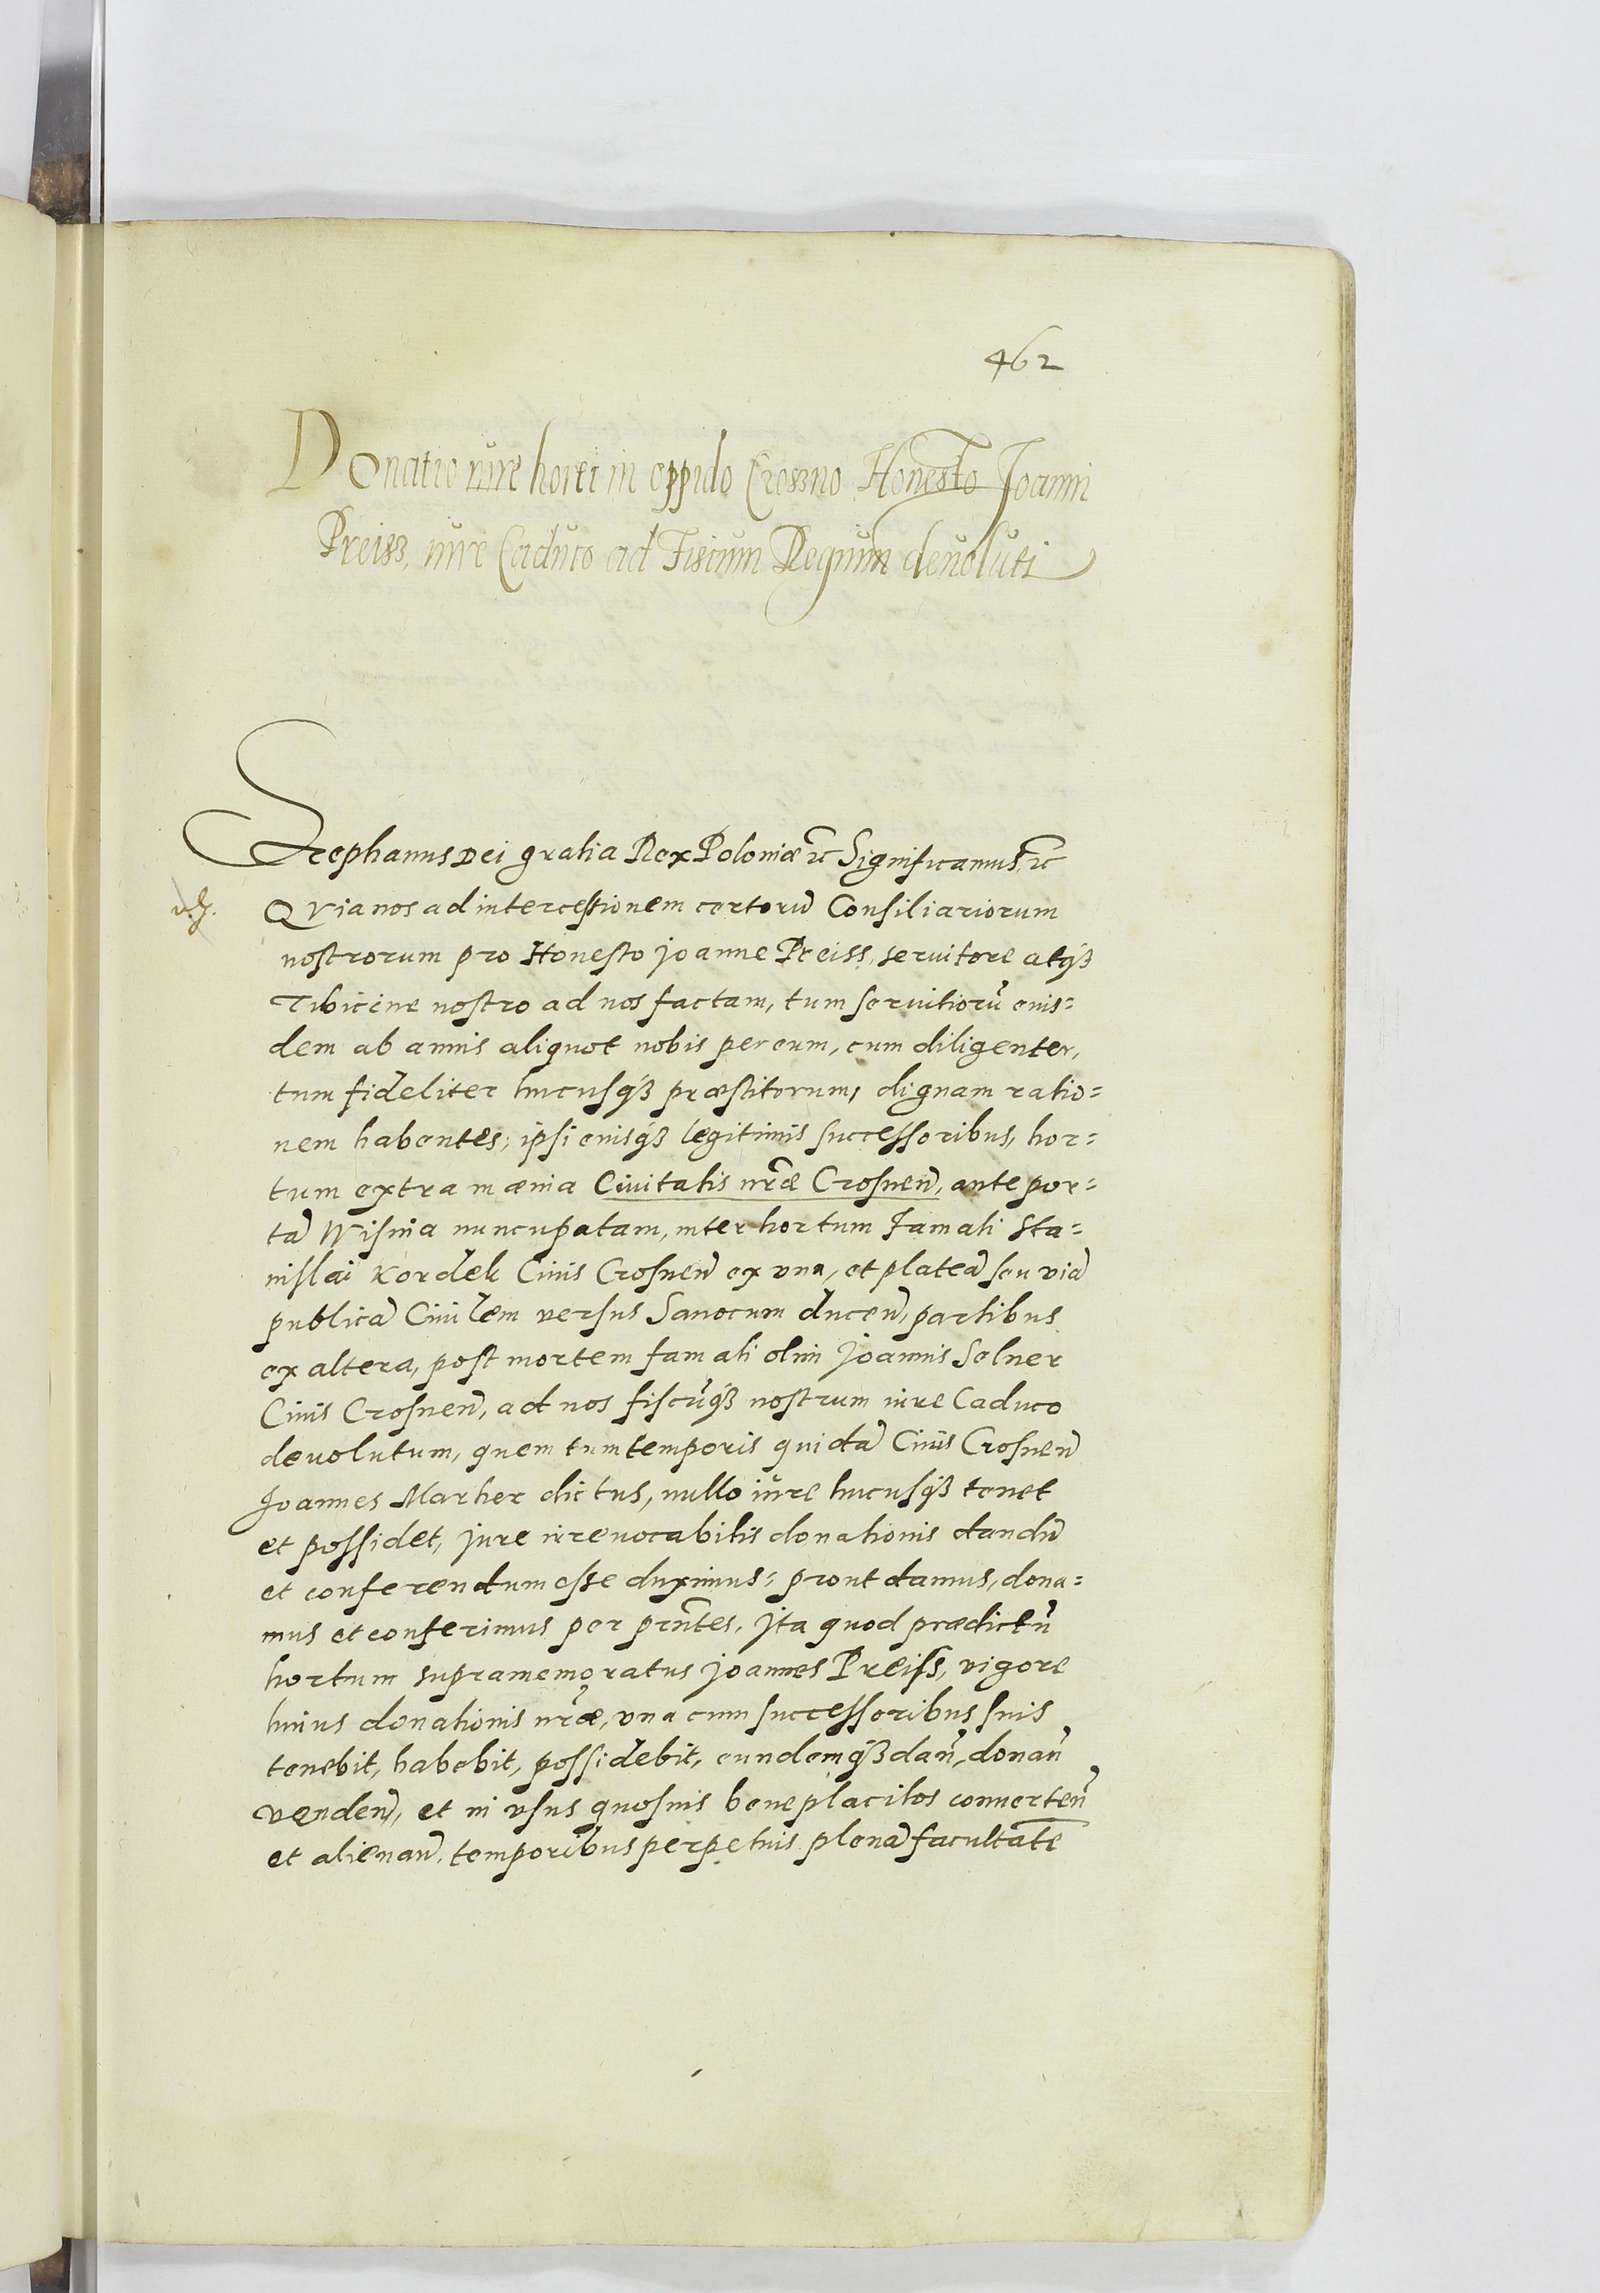 462
Donatio iure horti in oppido Croszno Honesto Joanni
Preisz, iure Caduco ad Fiscum Regium deuoluti
Stephanus Dei gratia Rex Poloniæ etc Significamus etc
QVia nos ad intercessionem certorū Consiliariorum
nostrorum pro Honesto Joanne Preiss, seruitore atqȝ
Tibicine nostro ad nos factam, tum seruitiorū eius=
dem ab annis aliquot nobis per eum, cum diligenter,
tum fideliter hucusqȝ præstitorum, dignam ratio=
nem habentes, ipsi eiusqȝ legitimis successoribus, hor=
tum extra mænia Ciuitatis nræ Crosneñ, ante por=
tā Wisnia nuncupatam, inter hortum Famati Sta=
nislai Kordek Ciuis Crosneñ ex vna, et plateā seu viā
publicā Ciuilem versus Sanocum duceñ, partibus
ex altera, post mortem famati olim Joannis Selner
Ciuis Crosneñ, ad nos fiscūqȝ nostrum iure Caduco
deuolutum, quem tum temporis quidā Ciuis Crosneñ
Joannes Marher dictus, nullo iure hucusqȝ tenet
et possidet, Jure irreuocabilis donationis dandū
et conferendum esse duximus: prout damus, dona=
mus et conferimus per prntes. Jta quod prædictū
hortum supramemoratus Joannes Preiss, vigore
huius donationis nræ, vna cum successoribus suis
tenebit, habebit, possidebit, eundemqȝ dañ, donañ
vendeñ, et in vsus quosuis beneplacitos conuerteñ
et alienañ, temporibus perpetuis plenā facultatē